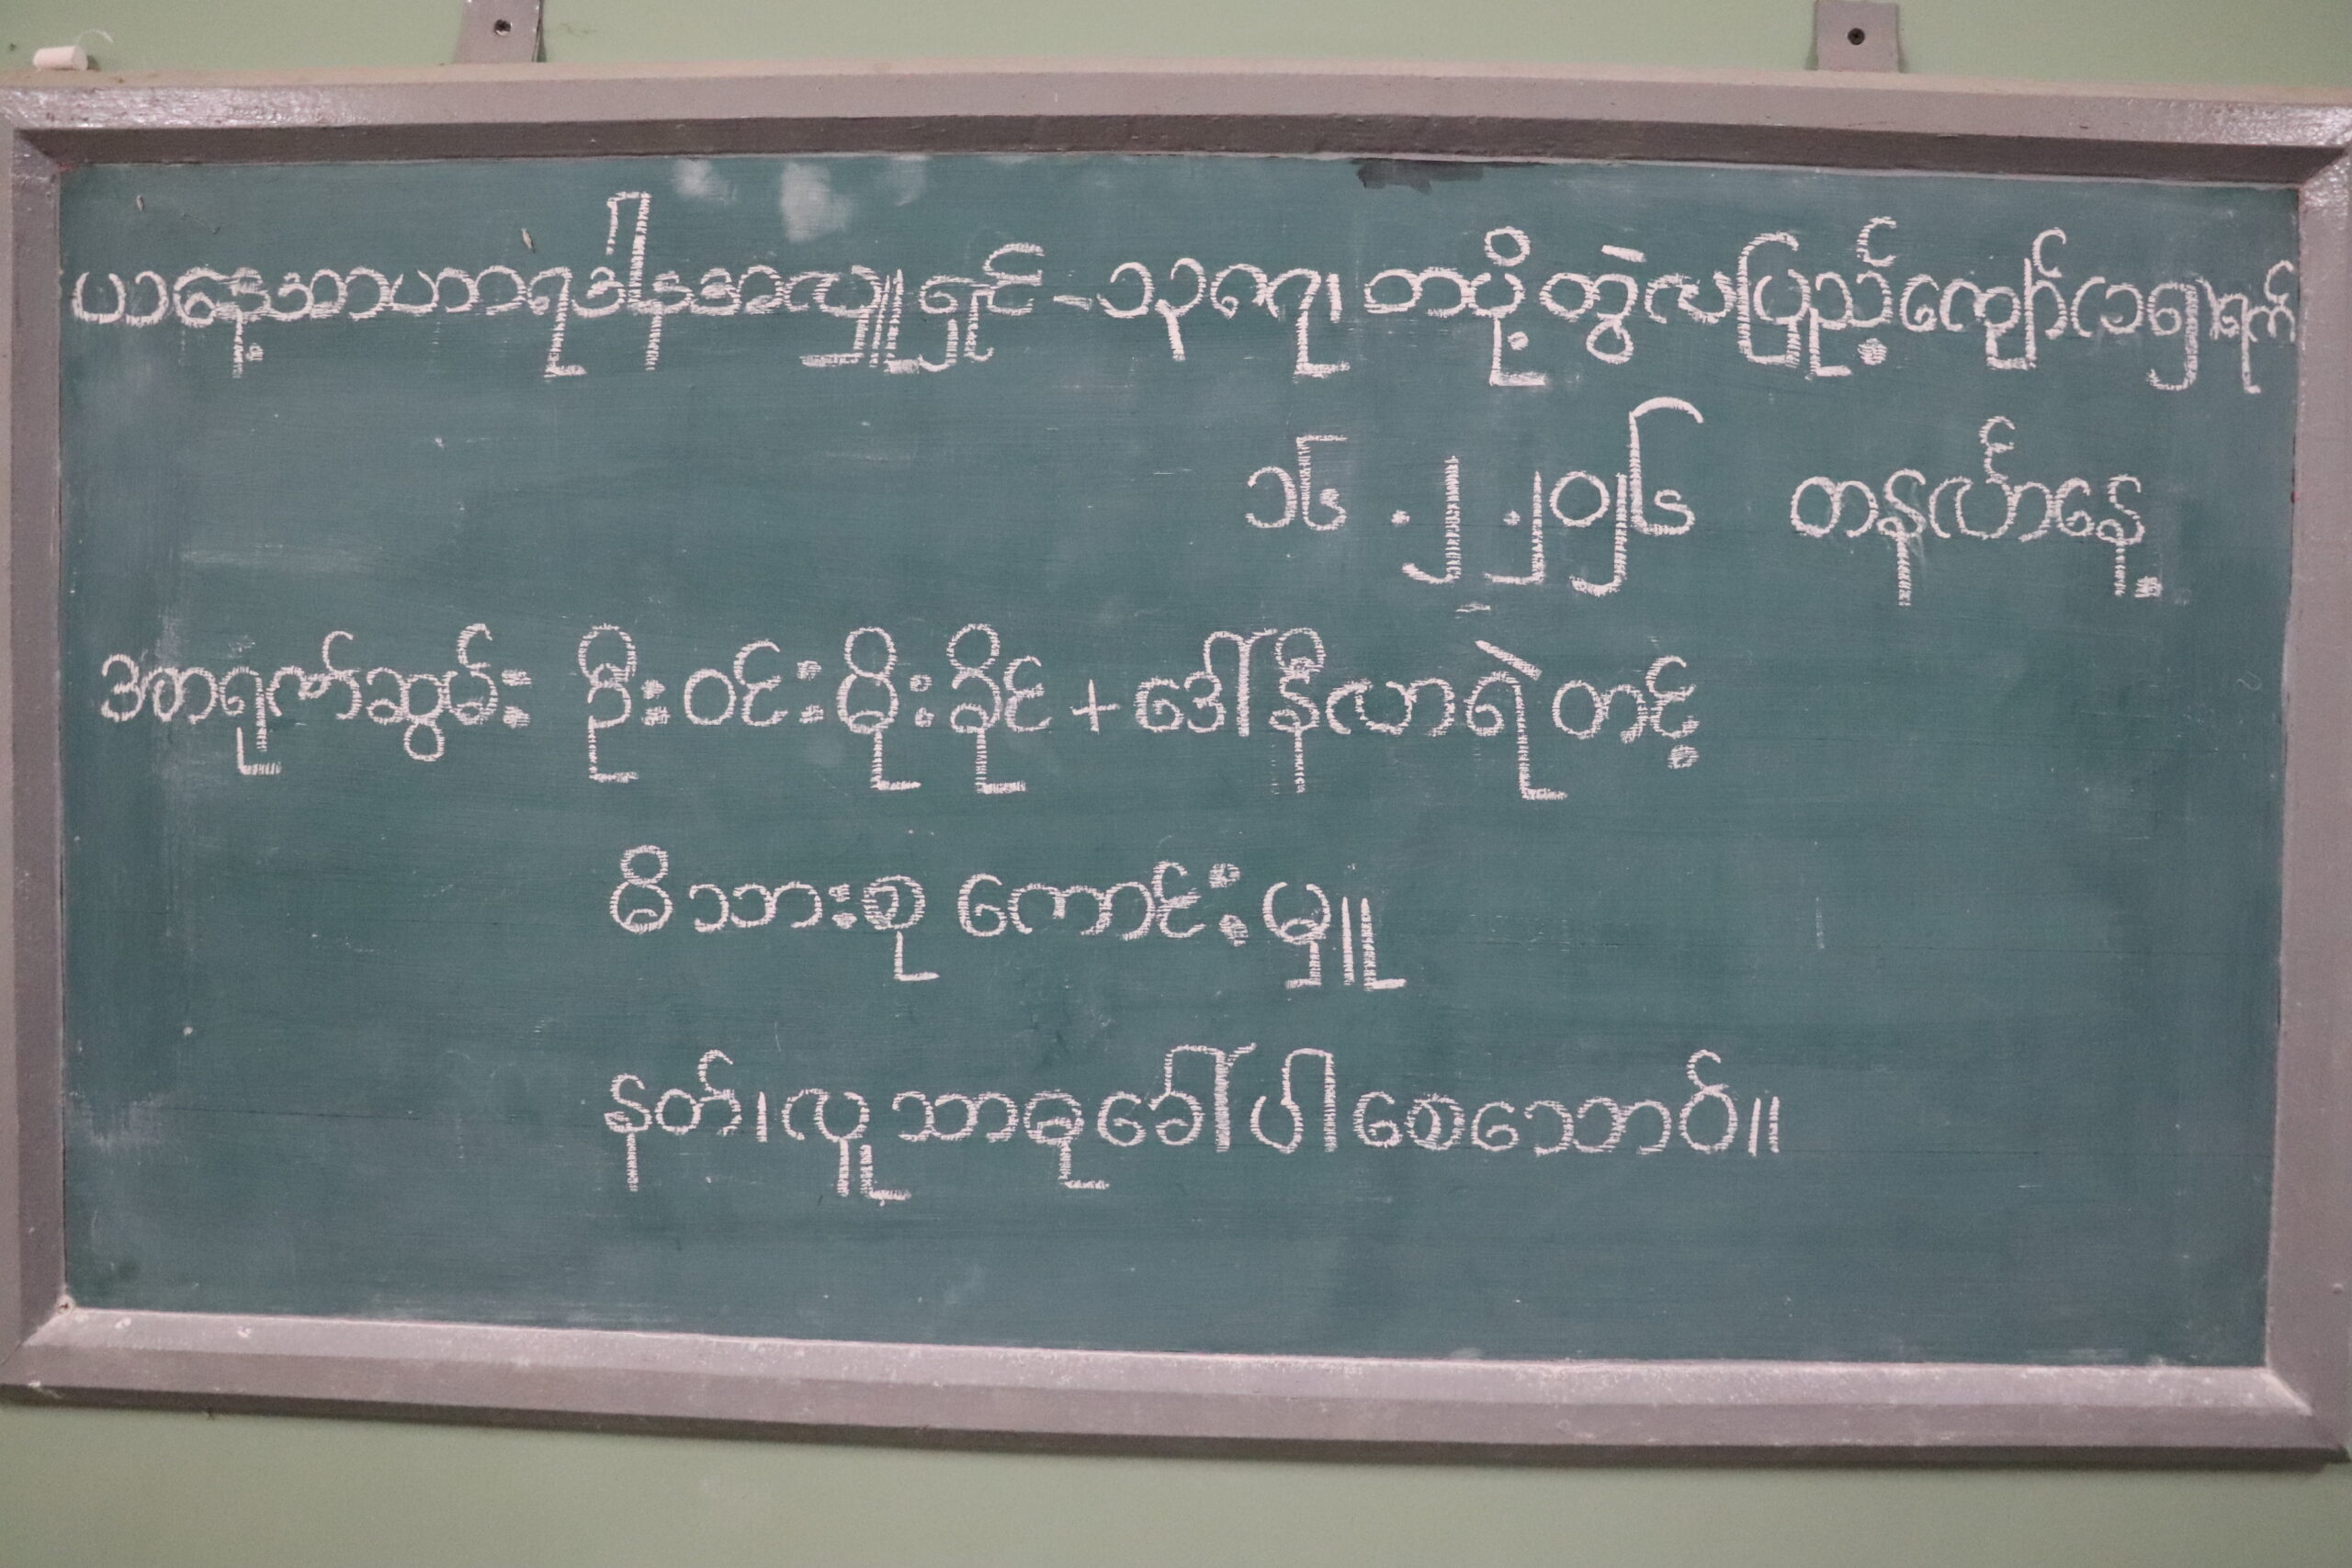 ယနေ့အာဟာရဒါနအလှူရှင် - ၁၃၈၇၊ တပို့တွဲလပြည့်ကျော်(၁၅)ရက်
၁၆.၂.၂၀၂၆ တနင်္လာနေ့
အရုဏ်ဆွမ်း ဦးဝင်းမိုးခိုင် + ဒေါ်နီလာရဲတင့်
မိသားစု ကောင်းမှူ
နတ်၊လူ သာဓုခေါ်ပါစေသောဝ်။